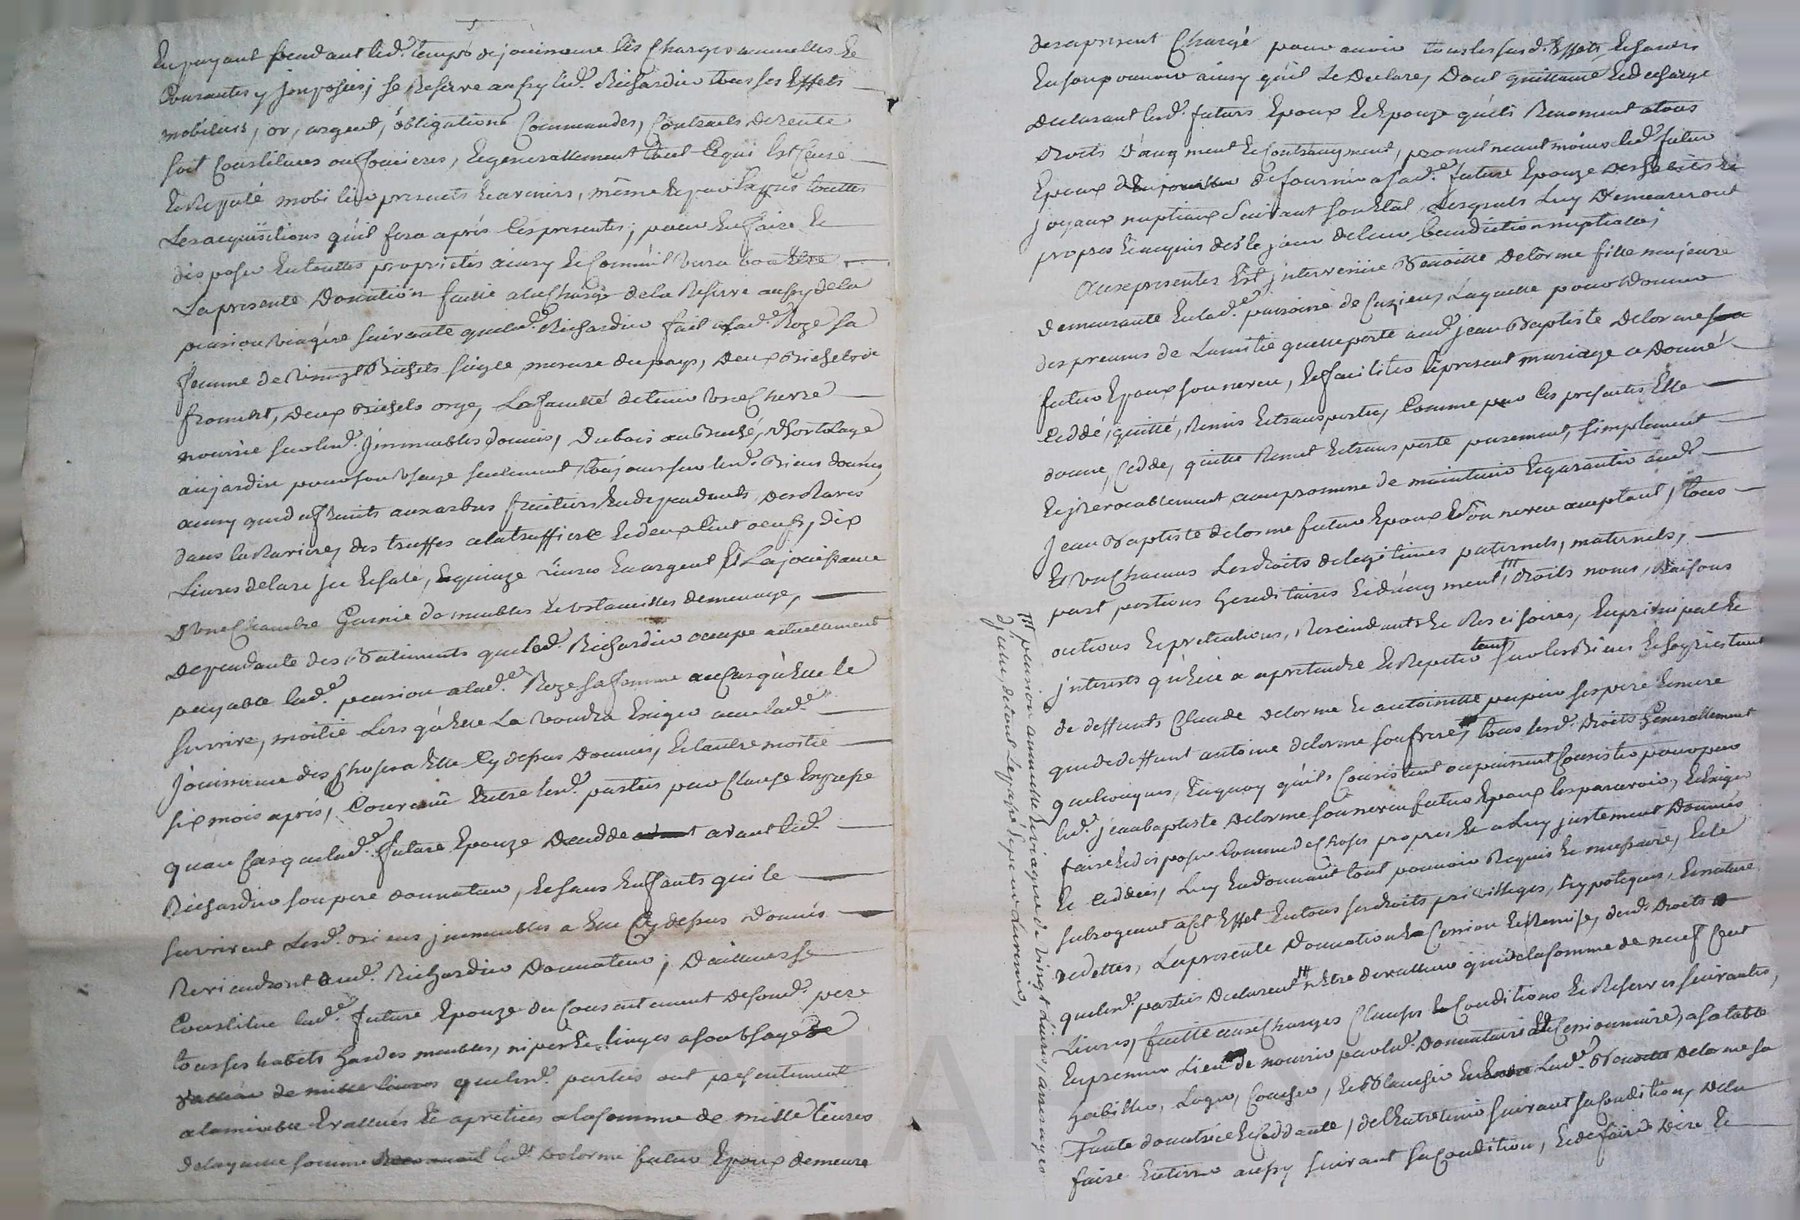 En payant pendant led. temps de jouissance les charges annuelles et
courantes y imposées, se Reserve aussy led. Richardier tous ses Effets
mobiliers, or, argent, obligations Commandes, Contracts de rente
soit constitues ou foncieres, et generallement tout ce qui Est Censé
et Reputé mobilier presents et avenirs, même et par Exprés touttes
Les acquisitions qu'il fera aprés les presentes, pour En faire et
disposer En touttes proprietés ainsy et Comm'il verra bon Etre
La presente Donation faitte a la Charge de la Reserve aussy de la
pension viagére suivante que led. Richardier fait a lad. Roze sa
femme de vingt Bichets seigle mesure du pays, deux Bichets de
froment, deux Bichets orge, La faculté de tenir une Chevre
nourrie sur lesd. immeubles donnés, du bois au Buché, d'hortolage
au jardin pour son usage seulement, toujours sur lesd. Biens donnés
ainsy que des fruits aux arbres fruitiers En dependants, des Raves
dans la Raviere, des truffes a la truffiere et deux Cent oeufs, dix
Livres de lard sec et salé, et quinze Livres En argent /// La jouissance
D'une Chambre Garnie de meubles et ustancilles de menage,
dependante des Batiments que led. Richardier occupe actuellement
payable lad. pension a lad. Roze sa femme au Cas qu'elle le
survive, moitié Lors qu'elle La voudra Exiger avec lad.
jouissance des Choses a Elle Cy dessus Données, et l'autre moitié
six mois aprés, Convenû Entre lesd. parties pour Clause Expresse
qu'au Cas que lad. future Epouze Decedde avant led.
Richardier son pere donnateur, et sans Enfants qui le
survivent Lesd. Biens immeubles a Elle Cy dessus Donnés
Reviendront aud. Richardier Donnateur; D'ailleurs se
Constitue lad. future Epouze du Consentement de sond. pere
tous ses habits hardes meubles, nipes et linges a son usage de
valleur de mille livres que lesd. parties ont presentement
a l'amiable Evallués et apretiés a la somme de mille livres
de laquelle somme led. Delorme futur Epoux demeure
des a present Chargé pour avoir tous lesd. Effets En sa
En son pouvoir ainsy qu'il Le Declare, Dont quittance et decharge
declarant lesd. futurs Epoux et Epouze qu'ils Renoncent a tous
Droits d'augment et Contraugment, promet neantmoins led. futur
Epoux de fournir a lad. future Epouze des habits et
joyaux nuptiaux suivant son Etat, Lesquels Luy Demeureront
propres et acquis dés le jour de leur benediction nuptialle;
Aux presentes Est intervenüe Benoitte Delorme fille majeure
demeurante En lad. paroisse de Cuzieu, Laquelle pour Donner
des preuves de L'amitié qu'elle porte aud. jean Baptiste Delorme
futur Epoux son neveu, Et faciliter le present mariage a Donné
Ceddé, quitté, Remis et transporté, Comme par Ces presentes Elle
donne, Cedde, quitte Remet et transporte purement, simplement
Et irrévocablement avec promesse de maintenir et garantir aud.
Jean Baptiste delorme futur Epoux et son neveu acceptant, tous
Et un Chacuns Les droits de legitimes paternels, maternels,
part portions hereditaires et d'augment, droits noms, Raisons
actions et pretentions, Rescindants et Rescisoires, En principal et
interests qu'elle a a pretendre et Repeter tant sur les Biens et hoyries tant
de deffunts Claude delorme et antoinette ses pere et mere
que de deffunt antoine delorme son frere, tous lesd. droits Generallement
quelconques, En quoy qu'ils Consistent ou puissent Consister pour par
led. jean baptiste Delorme son neveu futur Epoux les percevoir, et Exiger
faire et disposer Comme de Choses propres et a Luy justement Données
Et Ceddées, Luy En donnant tout pouvoir Requis et necessaire, et le
subrogeant a Cet Effet En tous ses droits privilleges, hypotéques, Et nature
de dettes, La presente Donnation Cession Et Remise, desd. Droits
que lesd. parties Declarent n'Etre de valleur que de la somme de neuf Cent
Livres, faitte aux Charges Clauses et Conditions et Reserves suivantes,
En premier Lieu de nourrir par led. Donnataire et Cessionnaire, a sa table
habiller, Loger, Coucher, et Blanchir lad. Benoitte delorme sa
Tante donnatrice et Ceddante, de l'Entretenir suivant sa Condition, de la
faire Enterrer aussy suivant sa Condition, et de faire Dire le
/// pension annuelle et viagere de vingt Livres,